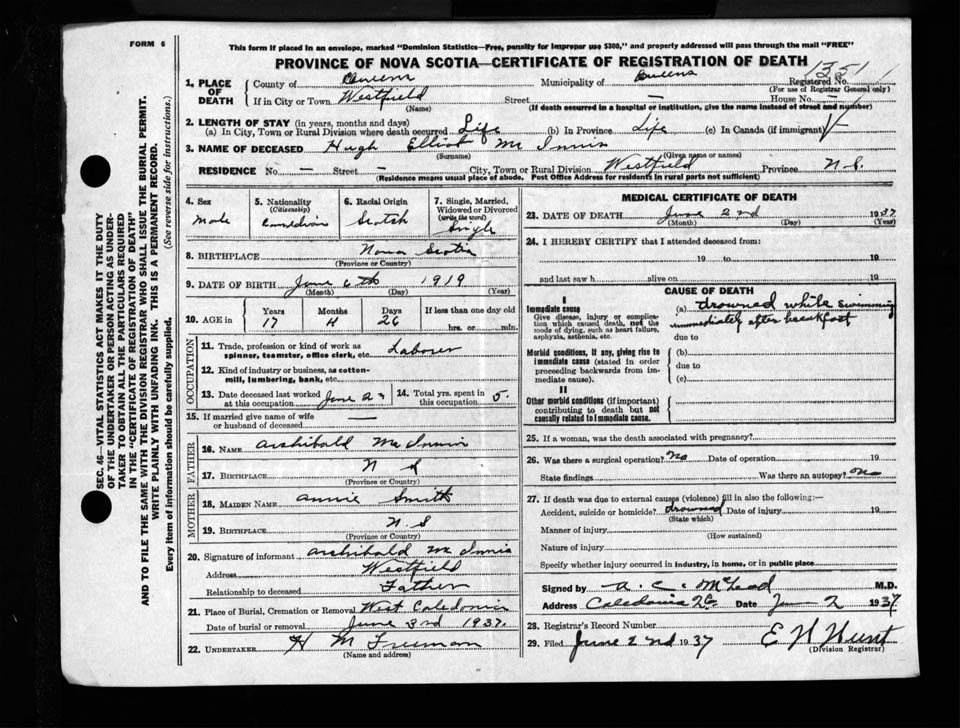 FORM 6
This form if placed in an envelope, marked "Dominion Statistics—Free, penalty for improper use $300," and properly addressed will pass through the mail "FREE"
PROVINCE OF NOVA SCOTIA—CERTIFICATE OF REGISTRATION OF DEATH
1351
1. PLACE OF DEATH
County of Queens Municipality of Queens Registered No.
(For use of Registrar General only)
If in City or Town Westfield Street — House No. —
(Name) (If death occurred in a hospital or institution, give the name instead of street and number)
2. LENGTH OF STAY (in years, months and days)
(a) In City, Town or Rural Division where death occurred Life (b) In Province Life (c) In Canada (if immigrant)
3. NAME OF DECEASED Hugh Elliot Mc Innis
(Surname) (Given name or names)
RESIDENCE No. — Street — City, Town or Rural Division Westfield Province N.S.
(Residence means usual place of abode. Post Office Address for residents in rural parts not sufficient)
4. Sex
male
5. Nationality
(Citizenship)
Canadian
6. Racial Origin
Scotch
7. Single, Married, Widowed or Divorced
(write the word)
Single
8. BIRTHPLACE Nova Scotia
(Province or Country)
9. DATE OF BIRTH June 6th 1919
(Month) (Day) (Year)
10. AGE in Years Months Days If less than one day old
17 26 hrs. or min.
OCCUPATION
11. Trade, profession or kind of work as spinner, teamster, office clerk, etc. Laborer
12. Kind of industry or business, as cotton-mill, lumbering, bank, etc.
13. Date deceased last worked at this occupation June
14. Total yrs. spent in this occupation 5.
15. If married give name of wife or husband of deceased —
FATHER
16. NAME Archibald Mc Innis
17. BIRTHPLACE N S
(Province or Country)
MOTHER
18. MAIDEN NAME Annie Smith
19. BIRTHPLACE N. S
(Province or Country)
20. Signature of informant Archibald Mc Innis
Address Westfield
Relationship to deceased Father
21. Place of Burial, Cremation or Removal West Caledonia
Date of burial or removal June 3rd 1937.
22. UNDERTAKER H M Freeman
(Name and address)
MEDICAL CERTIFICATE OF DEATH
23. DATE OF DEATH June 2nd 1937
(Month) (Day) (Year)
24. I HEREBY CERTIFY that I attended deceased from:
19 to 19
and last saw h alive on 19
CAUSE OF DEATH
I
Immediate cause
Give disease, injury or complication which caused death, not the mode of dying, such as heart failure, asphyxia, asthenia, etc.
(a) drowned while swimming
immediately after breakfast
due to
Morbid conditions, if any, giving rise to immediate cause (stated in order proceeding backwards from immediate cause).
(b)
due to
(c)
II
Other morbid conditions (if important) contributing to death but not causally related to immediate cause.
25. If a woman, was the death associated with pregnancy?
26. Was there a surgical operation? No Date of operation 19
State findings Was there an autopsy? No
27. If death was due to external causes (violence) fill in also the following:—
Accident, suicide or homicide? drowned Date of injury 19
(State which)
Manner of injury
(How sustained)
Nature of injury
Specify whether injury occurred in industry, in home, or in public place
Signed by A. C. McLeod M.D.
Address Caledonia Date June 2 1937
28. Registrar's Record Number
29. Filed June 2nd 1937 E H Hunt
(Division Registrar)
SEC. 46—VITAL STATISTICS ACT MAKES IT THE DUTY OF THE UNDERTAKER OR PERSON ACTING AS UNDERTAKER TO OBTAIN ALL THE PARTICULARS REQUIRED IN THE "CERTIFICATE OF REGISTRATION OF DEATH"
AND TO FILE THE SAME WITH THE DIVISION REGISTRAR WHO SHALL ISSUE THE BURIAL PERMIT.
WRITE PLAINLY WITH UNFADING INK. THIS IS A PERMANENT RECORD.
Every item of information should be carefully supplied. (See reverse side for instructions.)